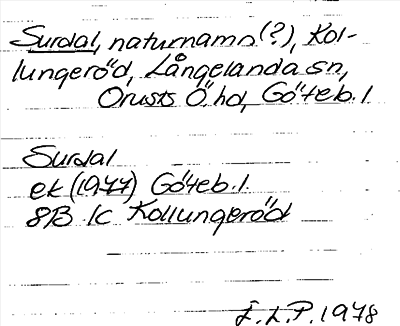 Surdal, naturnamn (?), Kol-
lungeröd, Långelanda sn,
Orusts Ö hd, Göteb. l
Surdal
ek (1977) Göteb. l.
8B 1c Kollungeröd
E.L.P. 1978